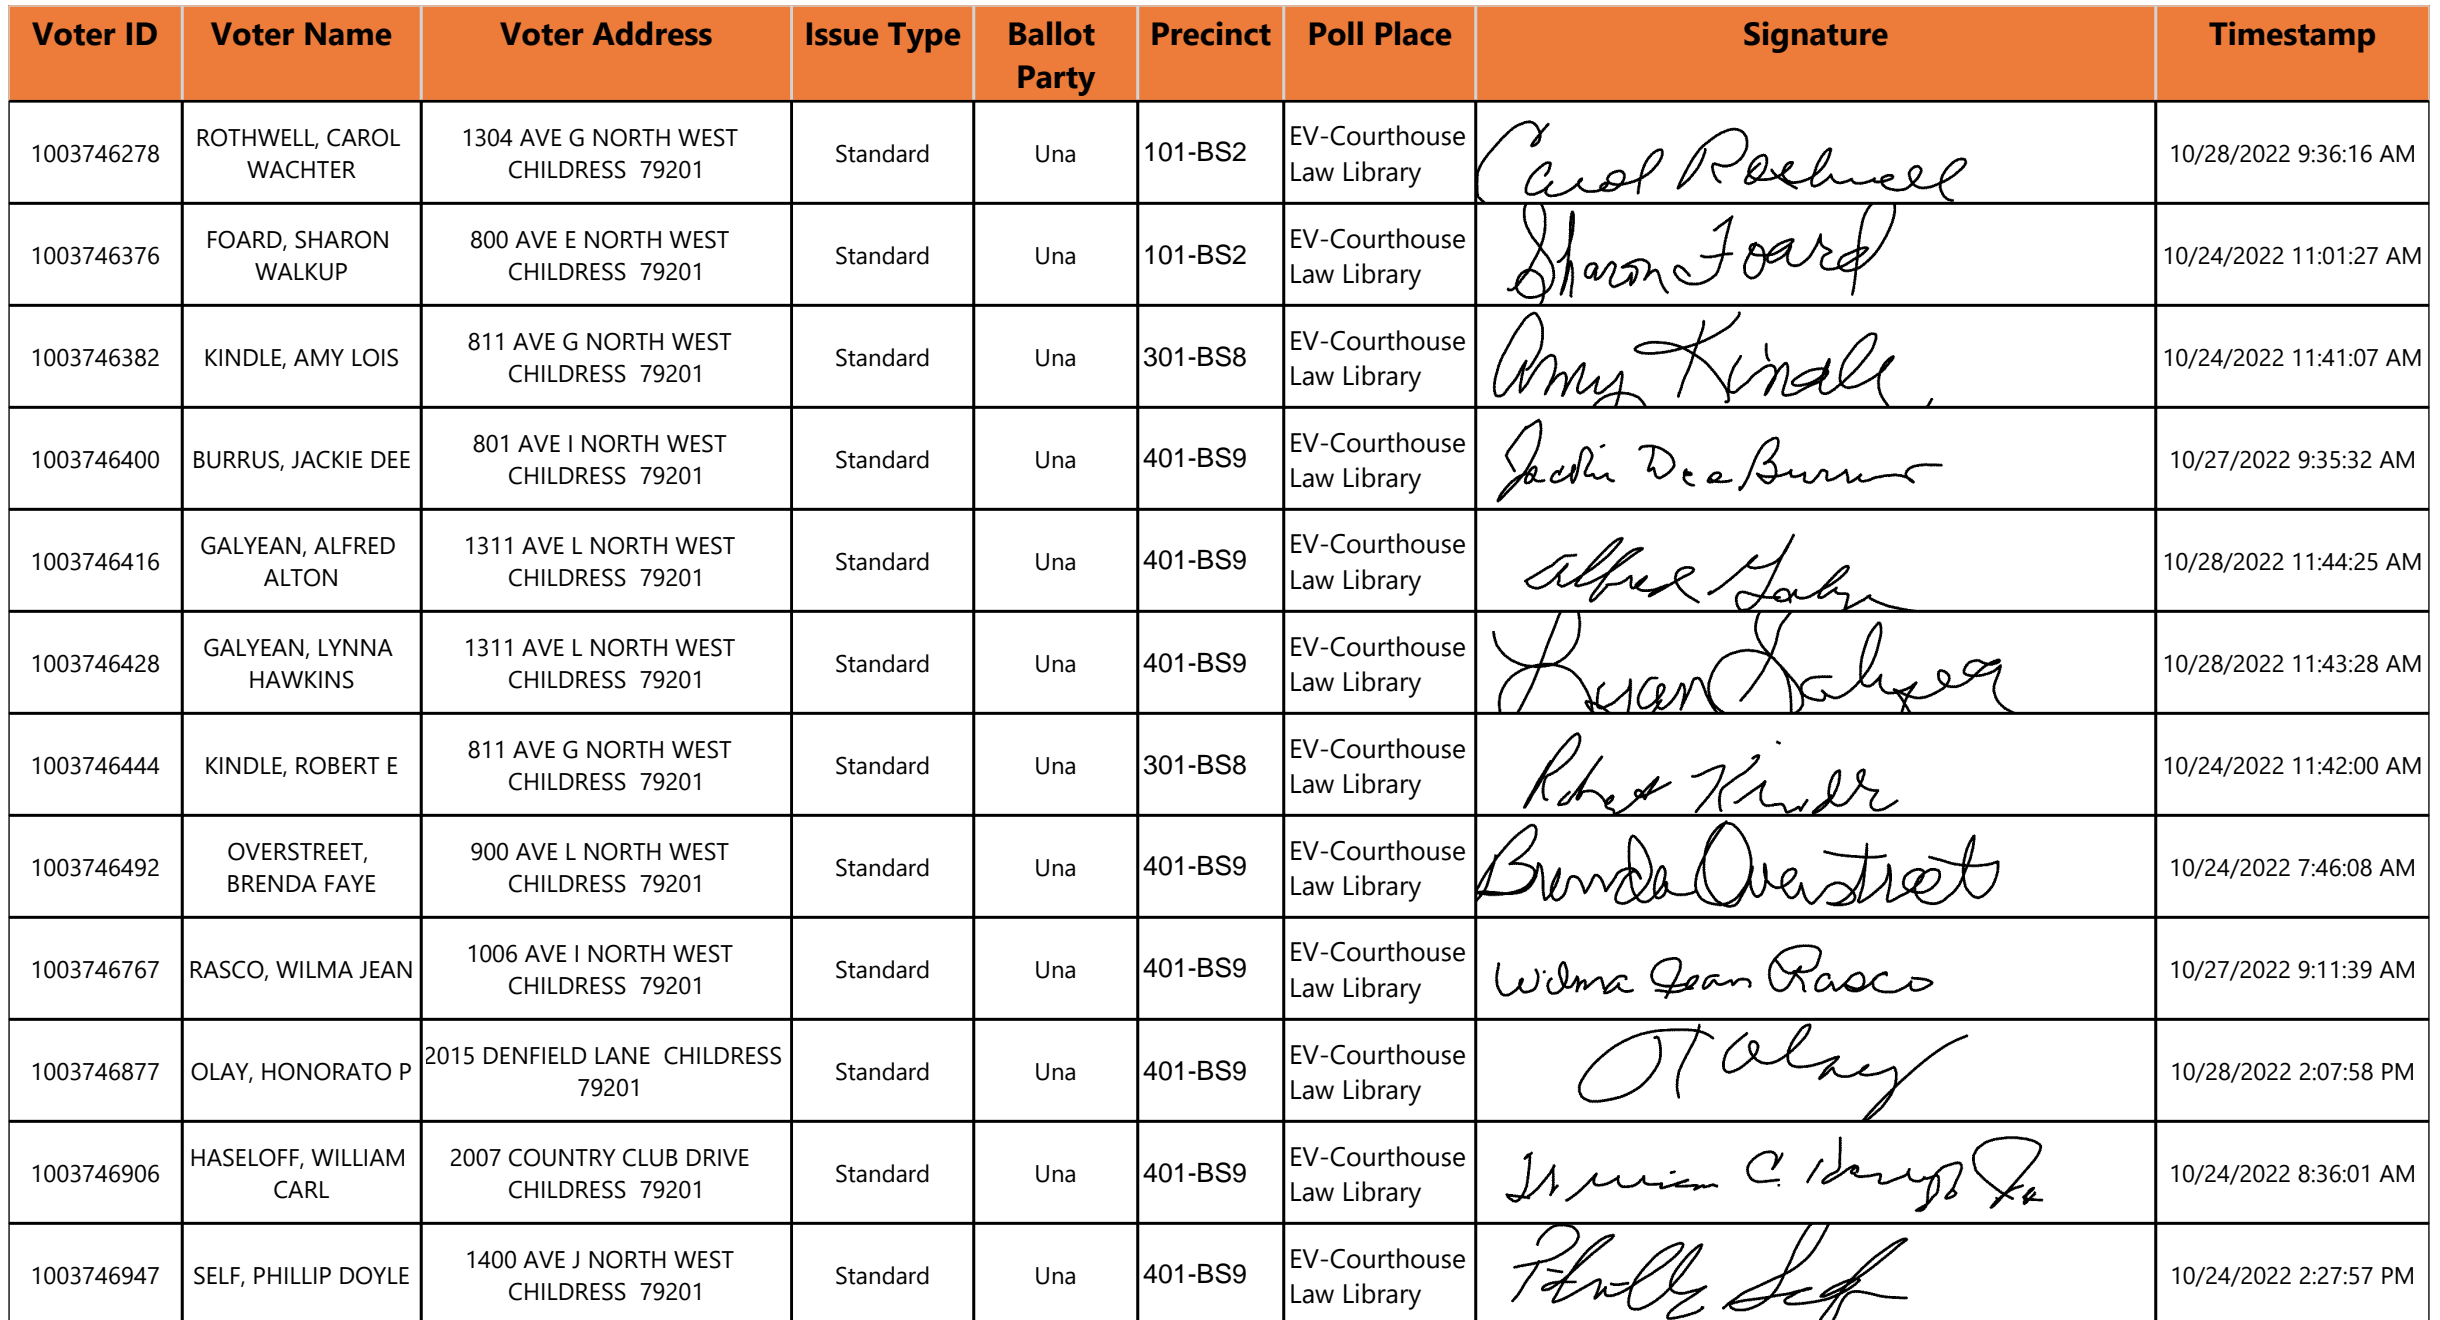 Voter ID Voter Name Voter Address Issue Type Ballot Party Precinct Poll Place Signature Timestamp
1003746278 ROTHWELL, CAROL WACHTER 1304 AVE G NORTH WEST CHILDRESS 79201 Standard Una 101-BS2 EV-Courthouse Law Library Carol Rothwell 10/28/2022 9:36:16 AM
1003746376 FOARD, SHARON WALKUP 800 AVE E NORTH WEST CHILDRESS 79201 Standard Una 101-BS2 EV-Courthouse Law Library Sharon Foard 10/24/2022 11:01:27 AM
1003746382 KINDLE, AMY LOIS 811 AVE G NORTH WEST CHILDRESS 79201 Standard Una 301-BS8 EV-Courthouse Law Library Amy Kindle 10/24/2022 11:41:07 AM
1003746400 BURRUS, JACKIE DEE 801 AVE I NORTH WEST CHILDRESS 79201 Standard Una 401-BS9 EV-Courthouse Law Library Jackie Dee Burrus 10/27/2022 9:35:32 AM
1003746416 GALYEAN, ALFRED ALTON 1311 AVE L NORTH WEST CHILDRESS 79201 Standard Una 401-BS9 EV-Courthouse Law Library Alfred 10/28/2022 11:44:25 AM
1003746428 GALYEAN, LYNNA HAWKINS 1311 AVE L NORTH WEST CHILDRESS 79201 Standard Una 401-BS9 EV-Courthouse Law Library 10/28/2022 11:43:28 AM
1003746444 KINDLE, ROBERT E 811 AVE G NORTH WEST CHILDRESS 79201 Standard Una 301-BS8 EV-Courthouse Law Library Robert Kindle 10/24/2022 11:42:00 AM
1003746492 OVERSTREET, BRENDA FAYE 900 AVE L NORTH WEST CHILDRESS 79201 Standard Una 401-BS9 EV-Courthouse Law Library Brenda Overstreet 10/24/2022 7:46:08 AM
1003746767 RASCO, WILMA JEAN 1006 AVE I NORTH WEST CHILDRESS 79201 Standard Una 401-BS9 EV-Courthouse Law Library Wilma Jean Rasco 10/27/2022 9:11:39 AM
1003746877 OLAY, HONORATO P 2015 DENFIELD LANE CHILDRESS 79201 Standard Una 401-BS9 EV-Courthouse Law Library 10/28/2022 2:07:58 PM
1003746906 HASELOFF, WILLIAM CARL 2007 COUNTRY CLUB DRIVE CHILDRESS 79201 Standard Una 401-BS9 EV-Courthouse Law Library 10/24/2022 8:36:01 AM
1003746947 SELF, PHILLIP DOYLE 1400 AVE J NORTH WEST CHILDRESS 79201 Standard Una 401-BS9 EV-Courthouse Law Library 10/24/2022 2:27:57 PM